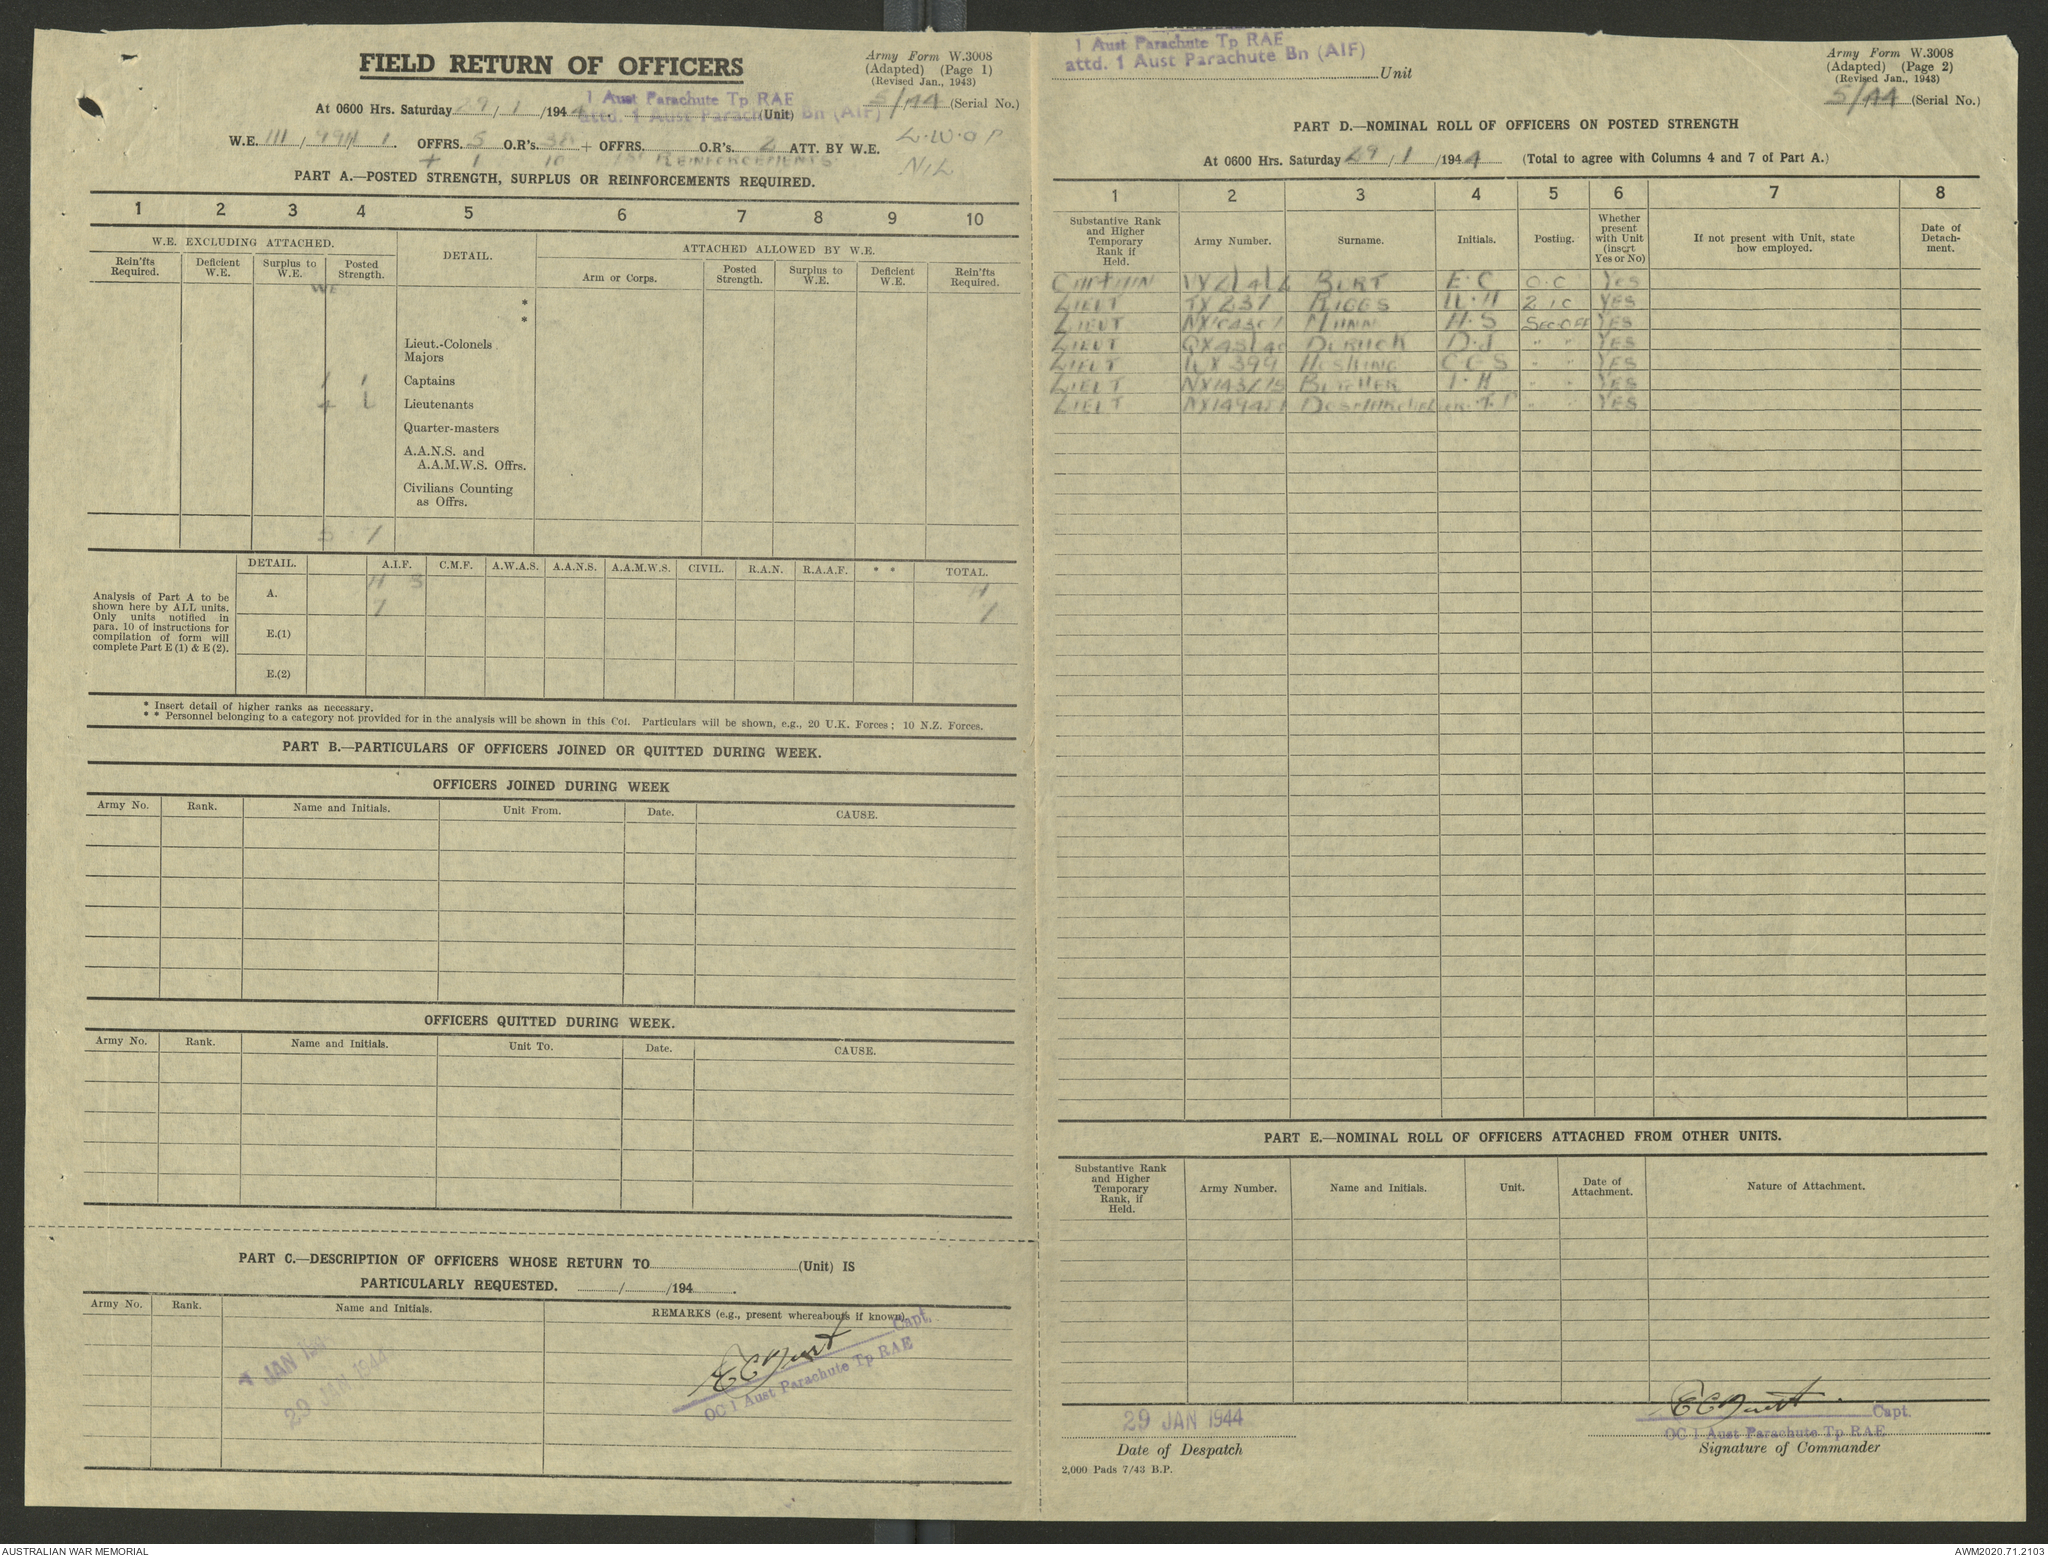 FIELD RETURN OF OFFICERS
Army Form W.3008
(Adapted) (Page 1)
(Revised Jan., 1943)
At 0600 Hrs. Saturday 29/1/1944
1 Aust Parachute Tp RAE
attd. 1 Aust Parachute Bn (AIF)
(Unit)
5/44 (Serial No.)
W.E. III / / 1. OFFRS. 5 O.R's. 38 + OFFRS. O.R's. 2 ATT. BY W.E.
L.W.O.P
+ 1 10 1st REINFORCEMENTS
NIL
PART A.—POSTED STRENGTH, SURPLUS OR REINFORCEMENTS REQUIRED.
1 2 3 4 5 6 7 8 9 10
W.E. EXCLUDING ATTACHED. DETAIL. ATTACHED ALLOWED BY W.E.
Rein'fts Required. Deficient W.E. Surplus to W.E. Posted Strength. Arm or Corps. Posted Strength. Surplus to W.E. Deficient W.E. Rein'fts Required.
WE
*
*
Lieut.-Colonels
Majors
1 1 Captains
Lieutenants
Quarter-masters
A.A.N.S. and
A.A.M.W.S. Offrs.
Civilians Counting
as Offrs.
5
DETAIL. A.I.F. C.M.F. A.W.A.S. A.A.N.S. A.A.M.W.S. CIVIL. R.A.N. R.A.A.F. * * TOTAL.
Analysis of Part A to be
shown here by ALL units.
Only units notified in
para. 10 of instructions for
compilation of form will
complete Part E (1) & E (2).
A.
E.(1)
E.(2)
* Insert detail of higher ranks as necessary.
* * Personnel belonging to a category not provided for in the analysis will be shown in this Col. Particulars will be shown, e.g., 20 U.K. Forces; 10 N.Z. Forces.
PART B.—PARTICULARS OF OFFICERS JOINED OR QUITTED DURING WEEK.
OFFICERS JOINED DURING WEEK
Army No. Rank. Name and Initials. Unit From. Date. CAUSE.
OFFICERS QUITTED DURING WEEK.
Army No. Rank. Name and Initials. Unit To. Date. CAUSE.
PART C.—DESCRIPTION OF OFFICERS WHOSE RETURN TO (Unit) IS
PARTICULARLY REQUESTED. / /194 .
Army No. Rank. Name and Initials. REMARKS (e.g., present whereabouts if known).
JAN
29 JAN 1944
ECBurt Capt.
OC 1 Aust Parachute Tp RAE
1 Aust Parachute Tp RAE
attd. 1 Aust Parachute Bn (AIF)
Unit
Army Form W.3008
(Adapted) (Page 2)
(Revised Jan., 1943)
5/44 (Serial No.)
PART D.—NOMINAL ROLL OF OFFICERS ON POSTED STRENGTH
At 0600 Hrs. Saturday 29/1/1944 (Total to agree with Columns 4 and 7 of Part A.)
1 2 3 4 5 6 7 8
Substantive Rank and Higher Temporary Rank if Held. Army Number. Surname. Initials. Posting. Whether present with Unit (insert Yes or No) If not present with Unit, state how employed. Date of Detach-ment.
CAPTAIN BURT E.C O.C YES
LIEUT RIGGS 2 I C YES
LIEUT MANN H.S SEC OFF YES
LIEUT D.J " " YES
LIEUT HOSKING C E S " " YES
LIEUT BUTCHER " " YES
LIEUT " " YES
PART E.—NOMINAL ROLL OF OFFICERS ATTACHED FROM OTHER UNITS.
Substantive Rank and Higher Temporary Rank, if Held. Army Number. Name and Initials. Unit. Date of Attachment. Nature of Attachment.
29 JAN 1944
Date of Despatch
ECBurt Capt.
OC 1 Aust Parachute Tp RAE
Signature of Commander
2,000 Pads 7/43 B.P.
AUSTRALIAN WAR MEMORIAL
AWM2020.71.2103